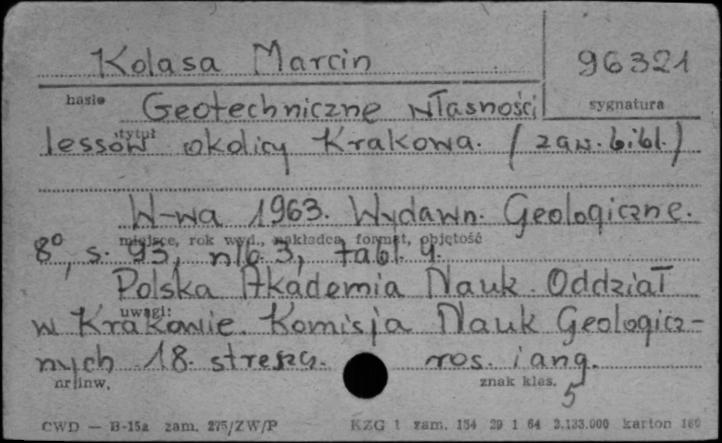 Kolasa Marcin 96321
hasło Geotechniczne własności sygnatura
tytuł
lessów okolicy Krakowa. (zaw. bibl.)
W-wa 1963. Wydawn. Geologiczne.
miejsce, rok wyd., nakładca, format, objętość
8°, s. 93, nlb. 3, tabl. 9.
Polska Akademia Nauk. Oddział
uwagi:
w Krakowie. Komisja Nauk Geologicz-
nych 18. streszcz. ros. i ang.
nr inw. znak klas. 5
CWD — B-15a zam. 275/ZW/P KZG 1 zam. 154 29 1 64 2.133.000 karton 160